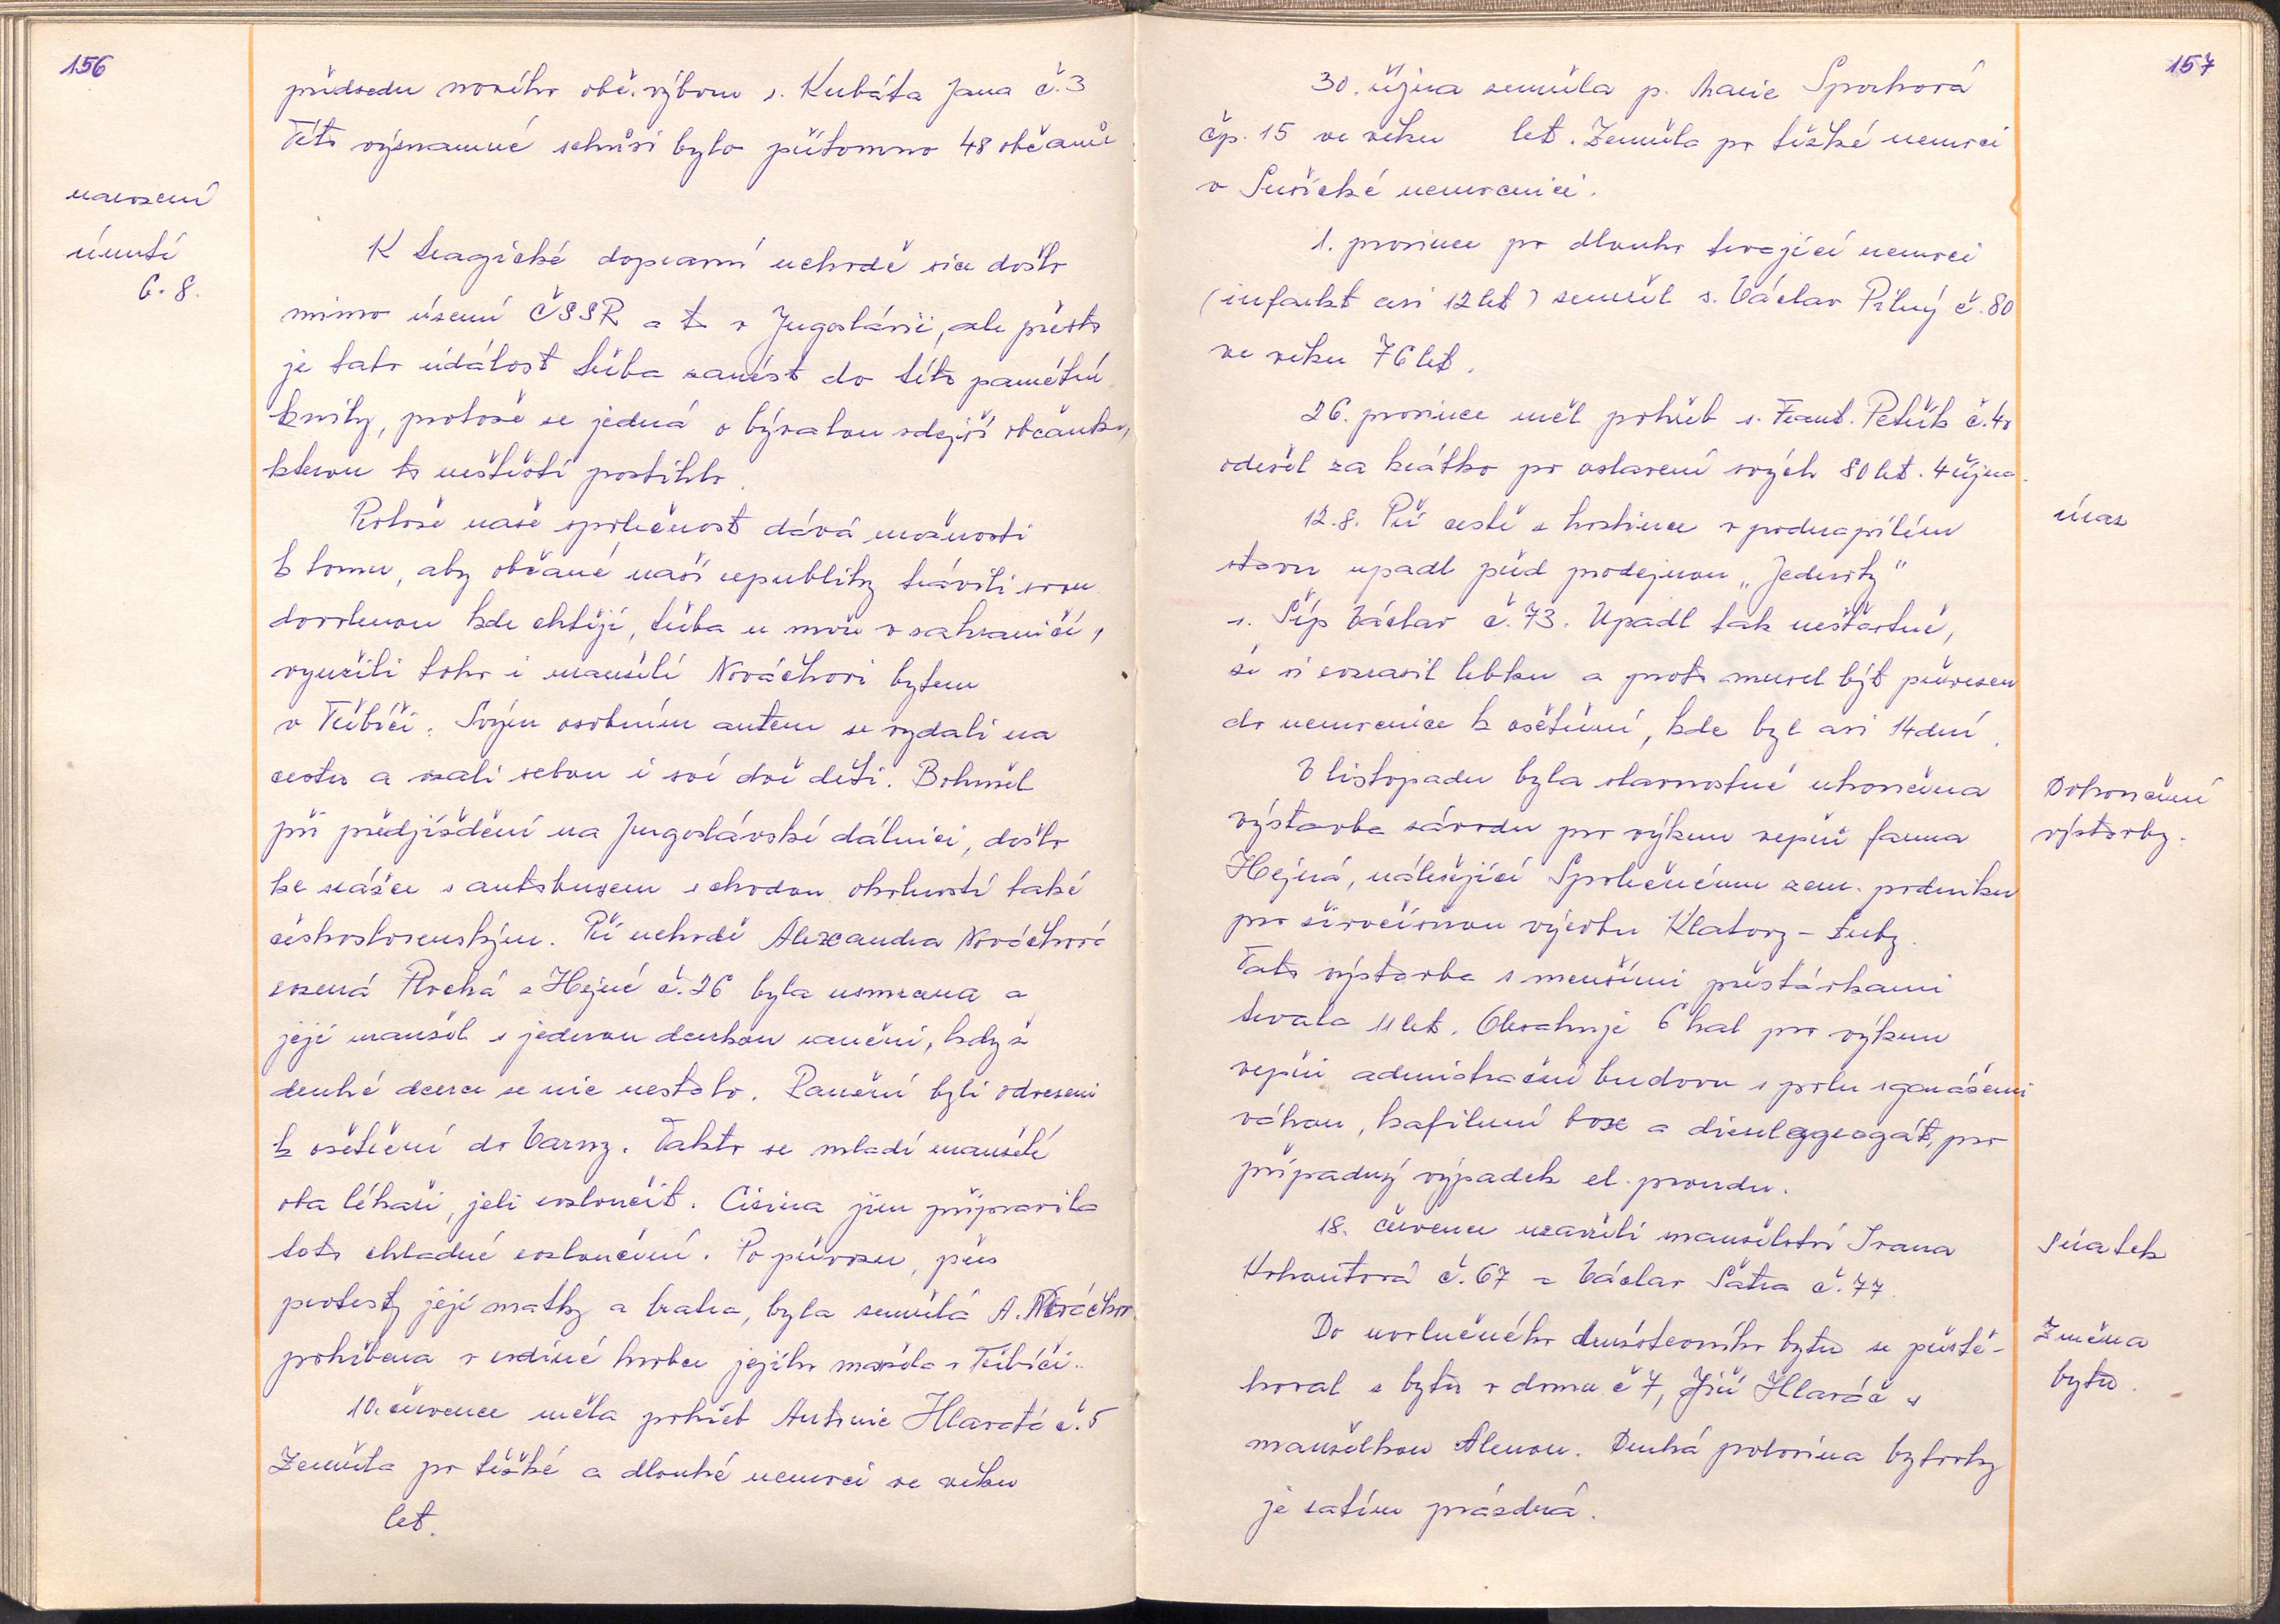 156
předsedu nového obč. výboru s. Kubáta Jana č. 3
Této významné schůzi bylo přítomno 48 občanů
narození
úmrtí
6. 8.
K tragické dopravní nehodě sice došlo
mimo území ČSSR a to v Jugoslávii, ale přesto
je tato událost třeba zanést do této pamětní
knihy, protože se jedná o bývalou zdejší občanku,
kterou to neštěstí postihlo.
Protože naše společnost dává možnosti
k tomu, aby občané naší republiky trávili svou
dovolenou kde chtějí, třeba u moře v zahraničí,
využili toho i manželé Nováčkovi bytem
v Třebíči. Svým osobním autem se vydali na
cestu a vzali sebou i své dvě děti. Bohužel
při předjíždění na Jugoslávské dálnici, došlo
ke srážce s autobusem shodou okolností také
československým. Při nehodě Alexandra Nováčková
rozená Plochá z Hejné č. 26 byla usmrcena a
její manžel s jednou dcerkou raněni, když
druhé dcerce se nic nestalo. Raněni byli odvezeni
k ošetření do Varny. Takto se mladí manželé
oba lékaři, jeli rozloučit. Cizina jim připravila
toto chladné rozloučení. Po převozu, přes
protesty její matky a bratra, byla zemřelá A. Nováčkov
pohřbena v rodinné hrobce jejího manžela v Třebíči.
10. července měla pohřeb Antonie Hlavatá č. 5
Zemřela po těžké a dlouhé nemoci ve věku
let.
157
30. října zemřela p. Marie Sporková
čp. 15 ve věku let. Zemřela po těžké nemoci
v Sušické nemocnici.
1. prosince po dlouho trvající nemoci
(infarkt asi 12 let) zemřel s. Václav Pilný č. 80
ve věku 76 let.
26. prosince měl pohřeb s. Frant. Petřík č. 40
odešel za krátko po oslavení svých 80 let. 4 října.
úraz
12. 8. Při cestě z hostince v podnapilém
stavu upadl před prodejnou „Jednoty"
s. Šíp Václav č. 73. Upadl tak nešťastně,
že si rozrazil lebku a proto musel být převezen
do nemocnice k ošetření, kde byl asi 14 dní.
Dokončení
výstavby.
V listopadu byla slavnostně ukončena
výstavba závodu pro výkrm vepřů farma
Hejná, náležející Společnému zem. podniku
pro živočišnou výrobu Klatovy - Luby.
Tato výstavba s menšími přestávkami
trvala 11 let. Obsahuje 6 hal pro výkrm
vepřů admistrační budovu s
váhou, kafilerní box a dieselagregát, pro
případný výpadek el. proudu.
Sňatek
18. července uzavřeli manželství Ivana
Kohoutová č. 67 a Václav Šatra č. 77.
Změna
bytu.
Do uvolněného bytu se přestě-
hoval z bytu v domu č 7, Jiří Hlaváč s
manželkou Alenou. Druhá polovina bytovky
je zatím prázdná.